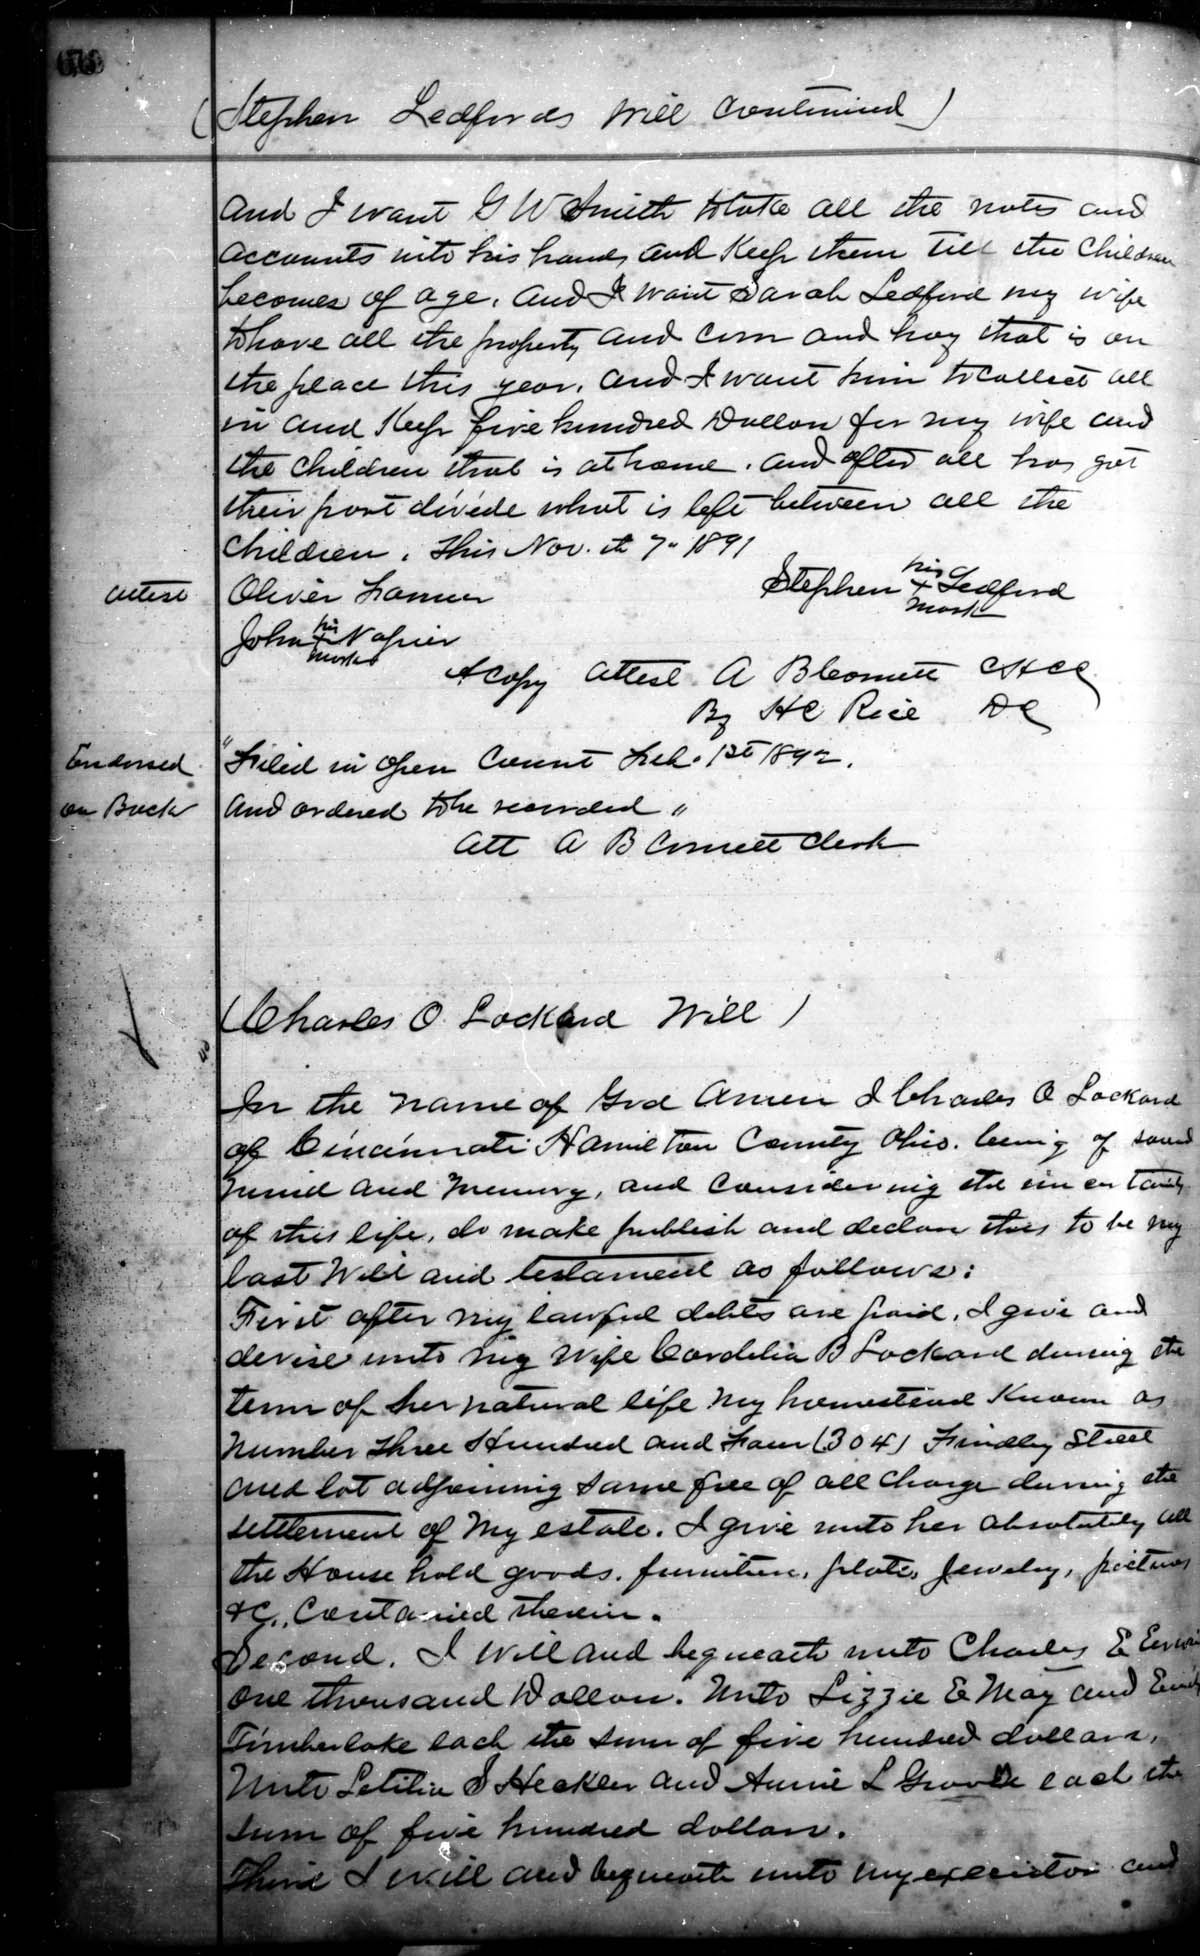 (Stephen Ledfords Will Continued)
And I want G W Smith to take all the notes and
accounts into his hands and Keep them till the Children
becomes of age. And I want Sarah Ledford my wife
to have all the property and corn and hay that is on
the place this year. And I want him to Collect all
in and Keep five hundred Dollars for my wife and
the Children that is at home. and after all has got
their part divide what is left between all the
Children. This Nov. th 7" 1891
Stephen his x mark Ledford
Attest Oliver
John his x mark Napier
A copy Attest A B Cornett C H C C
By H C Rice D C
Endorsed "Filed in open Court Feb. 1st 1892.
on Back And ordered to be recorded"
Att A B Cornett Clerk
(Charles O Lockard Will)
In the name of God Amen I Charles O Lockard
of Cincinnati Hamilton County Ohio. being of sound
mind and memory, and Considering the uncertainty
of this life, do make publish and declare this to be my
last Will and testament as follows:
First after my lawful debts are paid, I give and
devise unto my Wife Cordelia B Lockard during the
term of her natural life my homestead Known as
Number Three Hundred and Four (304) Findley Street
and lot adjoining same free of all Charge during the
settlement of my estate. I give unto her absolutely all
the House hold goods. furniture, plate, Jewelry, pictures
&C., Contained therein.
Second. I Will and bequeath unto Charles E
one thousand Dollars. Unto Lizzie E May and
Timberlake each the sum of five hundred dollars.
Unto Letitia S Heckler and Annie L each the
sum of five hundred dollars.
Third I will and bequeath unto my executor and